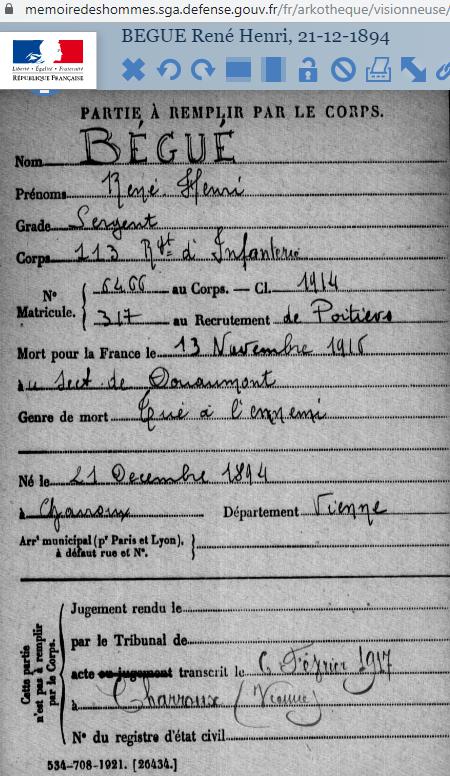 memoiredeshommes.sga.defense.gouv.fr/fr/arkotheque/visionneuse/
BEGUE René Henri, 21-12-1894
Liberté • Égalité • Fraternité
RÉPUBLIQUE FRANÇAISE
PARTIE À REMPLIR PAR LE CORPS.
Nom BÉGUÉ
Prénoms René Henri
Grade Sergent
Corps 113 Rgt d'Infanterie
N° Matricule. { 6466 au Corps. — Cl. 1914
317 au Recrutement de Poitiers
Mort pour la France le 13 Novembre 1916
au Sect. de Douaumont
Genre de mort Tué à l'ennemi
Né le 21 Décembre 1894
à Charroux Département Vienne
Arrt municipal (pr Paris et Lyon),
à défaut rue et N°. }
Cette partie n'est pas à remplir par le Corps. {
Jugement rendu le
par le Tribunal de
acte ou jugement transcrit le 6 Février 1917
à Charroux (Vienne)
N° du registre d'état civil
534-708-1921. [26434.]